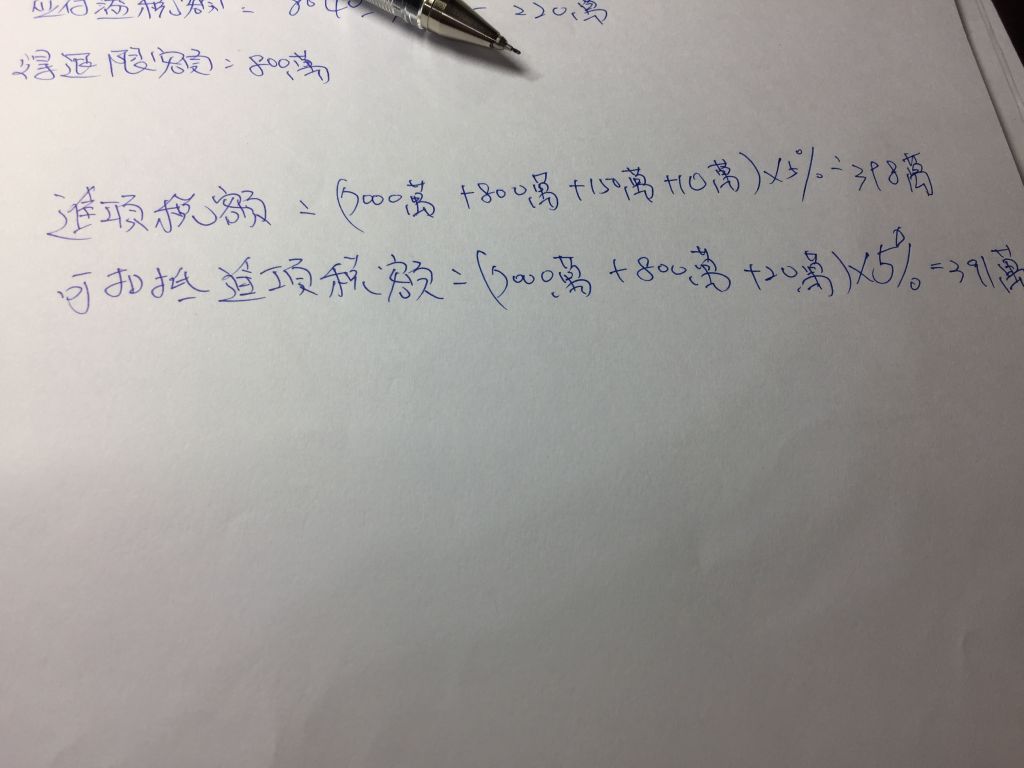 稅額= = 220萬
得退限額=800萬
進項稅額 = (7000萬+800萬+150萬+10萬)×5%=398萬
可扣抵進項稅額=(7000萬+800萬+20萬)×5%=391萬